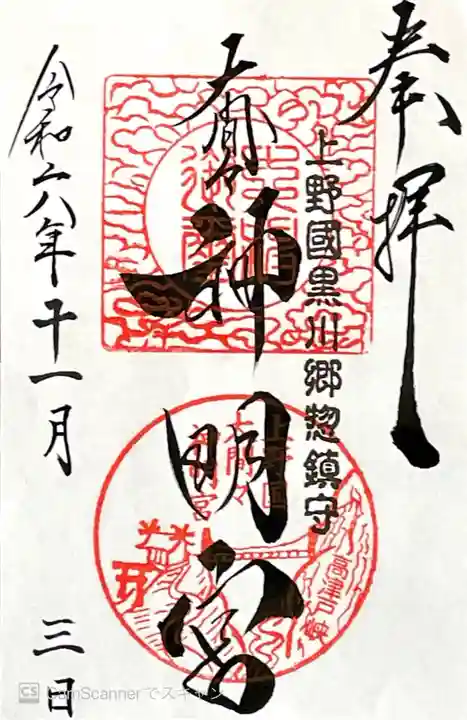 奉拝
上野國黒川郷惣鎮守
大間々
神明宮
上野国
大間々
神明宮
高津戸峡
令和六年十一月 三日
CS CamScannerでスキャン